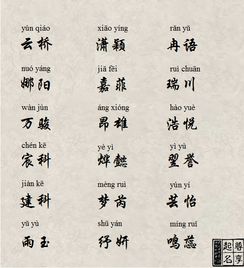 yún qiáo xiāo yǐng rǎn yǔ
云桥 潇颖 冉语
nuó yáng jiā fēi ruì chuān
娜阳 嘉菲 瑞川
wàn jùn áng xióng hào yuè
万骏 昂雄 浩悦
chén kē yè yì yì yù
宸科 烨懿 翌誉
jiàn kē mèng ruì yún yí
建科 梦芮 芸怡
yǔ yù shū yán míng ruǐ
雨玉 纾妍 鸣蕊
起名